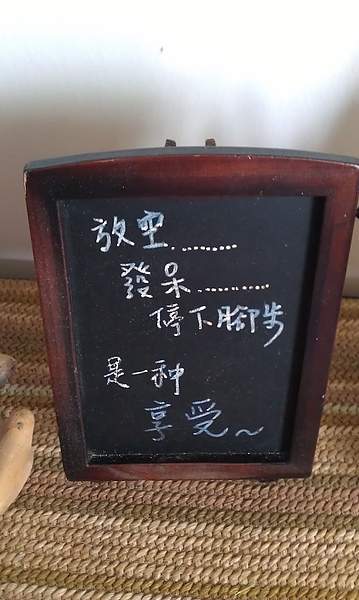 放空.........
發呆..........
停下腳步
是一種
享受~